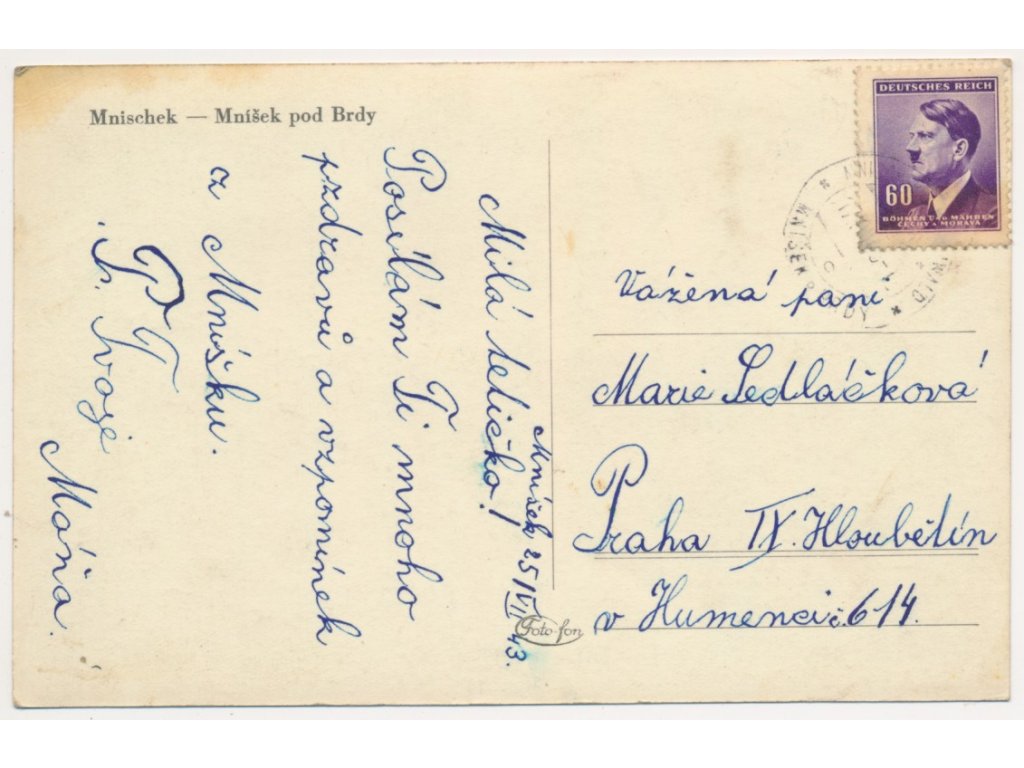 Mnischek — Mníšek pod Brdy
DEUTSCHES REICH
60
BÖHMEN U. MÄHREN
ČECHY A MORAVA
Mníšek 25/VII 43.
Milá tetičko!
Posílám Ti mnoho
pozdravů a vzpomínek
z Mníšku.
P. T.
Tvoje
Máňa.
Vážená paní
Marie Sedláčková
Praha IX. Hloubětín
v Humenci č. 614.
Foto-fon